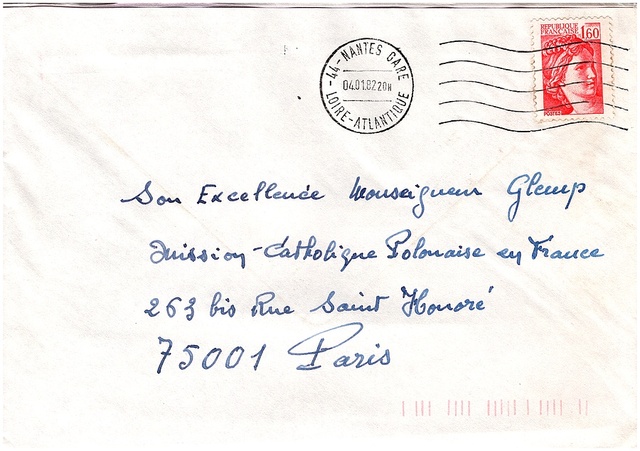 REPUBLIQUE FRANÇAISE 1,60
POSTES
44-NANTES GARE
04.01.82 20H
LOIRE-ATLANTIQUE
Son Excellence Monseigneur Glemp
Mission-Catholique Polonaise en France
263 bis Rue Saint Honoré
75001 Paris